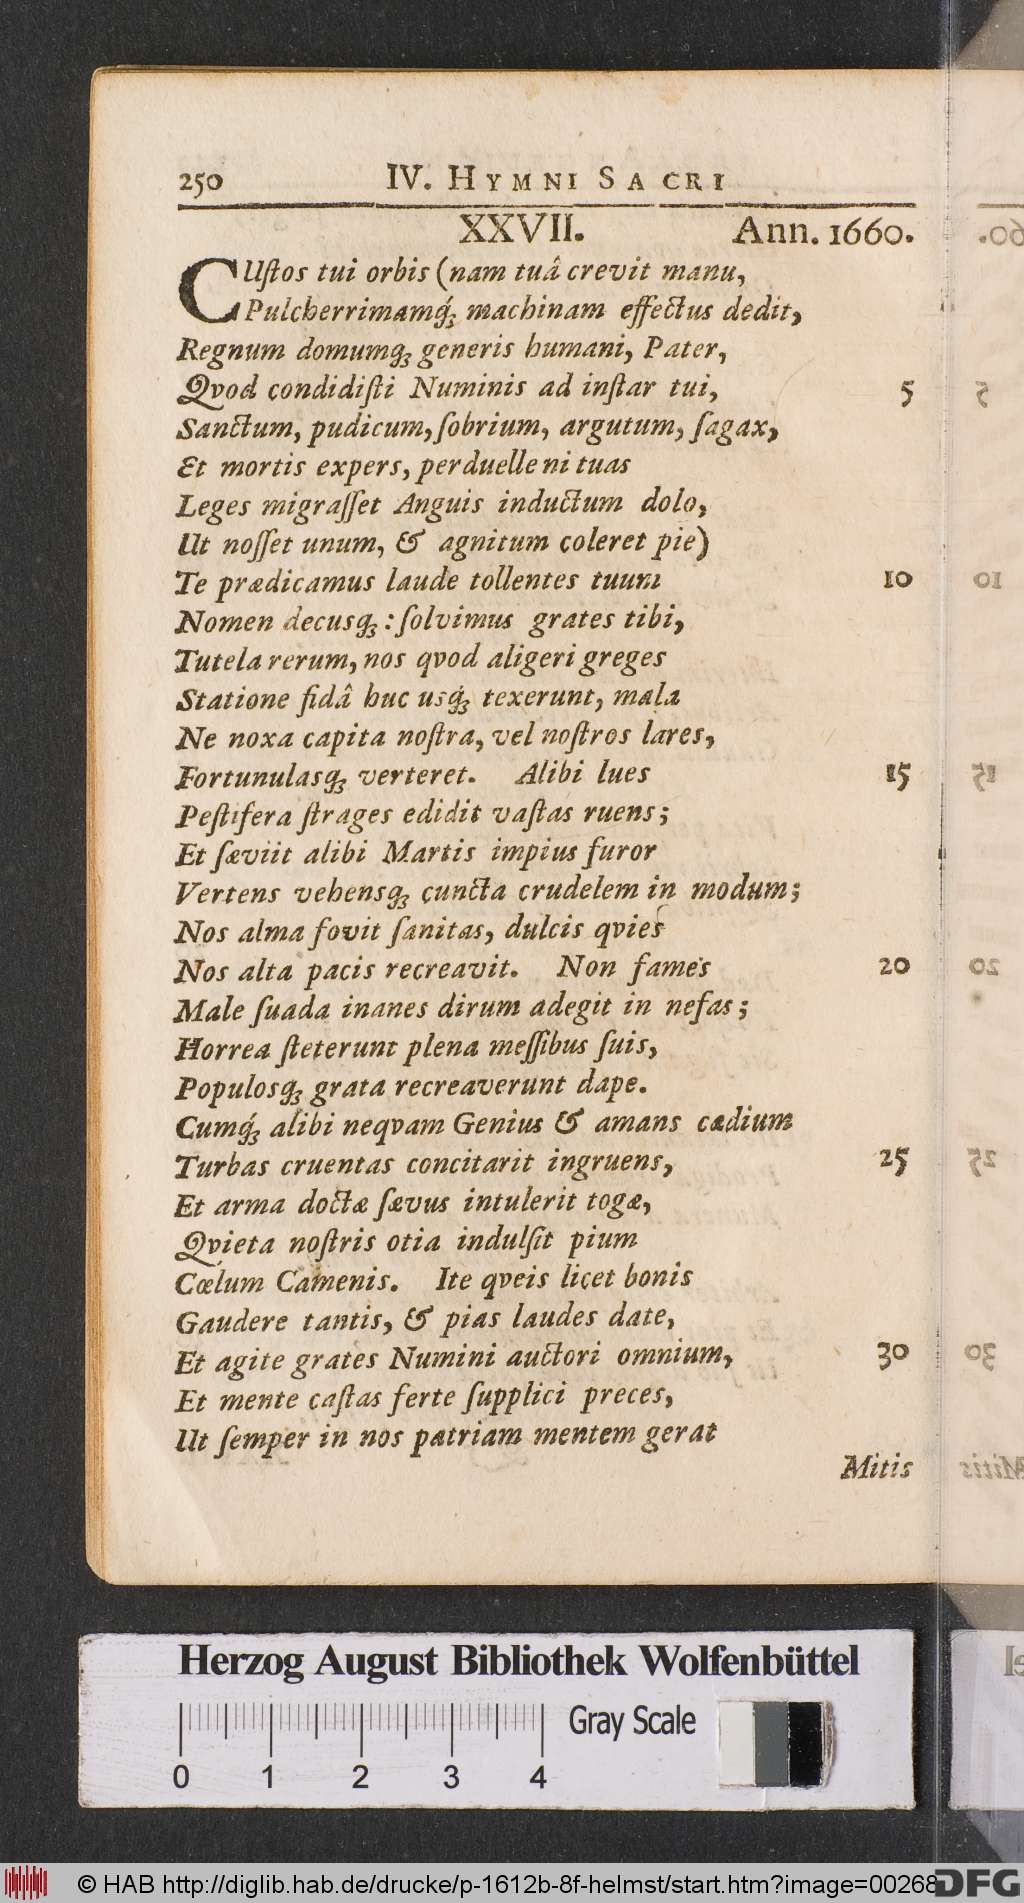 250 IV. HYMNI SACRI
XXVII. Ann. 1660.
CUſtos tui orbis (nam tuâ crevit manu,
Pulcherrimamq́ꝫ machinam effectus dedit,
Regnum domumqꝫ generis humani, Pater,
Qvod condidiſti Numinis ad inſtar tui, 5
Sanctum, pudicum, ſobrium, argutum, ſagax,
Et mortis expers, perduelle ni tuas
Leges migraſſet Anguis inductum dolo,
Ut noſſet unum, & agnitum coleret pie)
Te prædicamus laude tollentes tuum 10
Nomen decusqꝫ: ſolvimus grates tibi,
Tutela rerum, nos qvod aligeri greges
Statione fidâ huc usq́ꝫ texerunt, mala
Ne noxa capita noſtra, vel noſtros lares,
Fortunulasqꝫ verteret. Alibi lues 15
Peſtifera ſtrages edidit vaſtas ruens;
Et ſæviit alibi Martis impius furor
Vertens vehensqꝫ cuncta crudelem in modum;
Nos alma fovit ſanitas, dulcis qvies
Nos alta pacis recreavit. Non fames 20
Male ſuada inanes dirum adegit in nefas;
Horrea ſteterunt plena meſſibus ſuis,
Populosqꝫ grata recreaverunt dape.
Cumq́ꝫ alibi neqvam Genius & amans cædium
Turbas cruentas concitarit ingruens, 25
Et arma doctæ ſævus intulerit togæ,
Qvieta noſtris otia indulſit pium
Cœlum Camenis. Ite qveis licet bonis
Gaudere tantis, & pias laudes date,
Et agite grates Numini auctori omnium, 30
Et mente caſtas ferte ſupplici preces,
Ut ſemper in nos patriam mentem gerat
Mitis
Herzog August Bibliothek Wolfenbüttel
Gray Scale
0 1 2 3 4
© HAB http://diglib.hab.de/drucke/p-1612b-8f-helmst/start.htm?image=00268
DFG